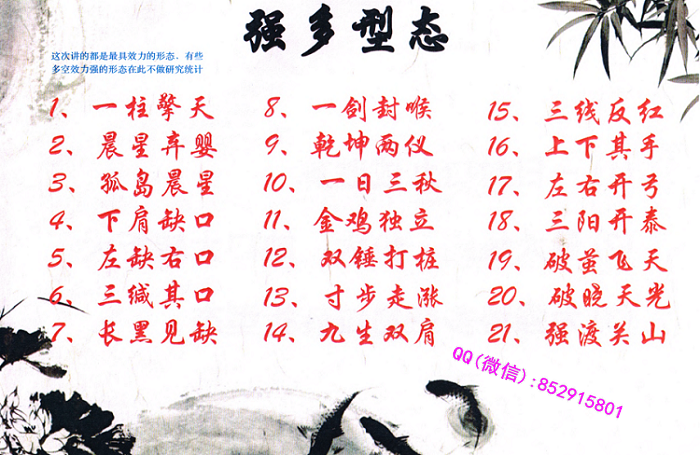 强多型态
这次讲的都是最具效力的形态。有些
多空效力强的形态在此不做研究统计
1、一柱擎天
2、晨星弃婴
3、孤岛晨星
4、下肩缺口
5、左缺右口
6、三缄其口
7、长黑见缺
8、一剑封喉
9、乾坤两仪
10、一日三秋
11、金鸡独立
12、双锤打桩
13、寸步走涨
14、九生双肩
15、三线反红
16、上下其手
17、左右开弓
18、三阳开泰
19、破茧飞天
20、破晓天光
21、强渡关山
QQ(微信):852915801